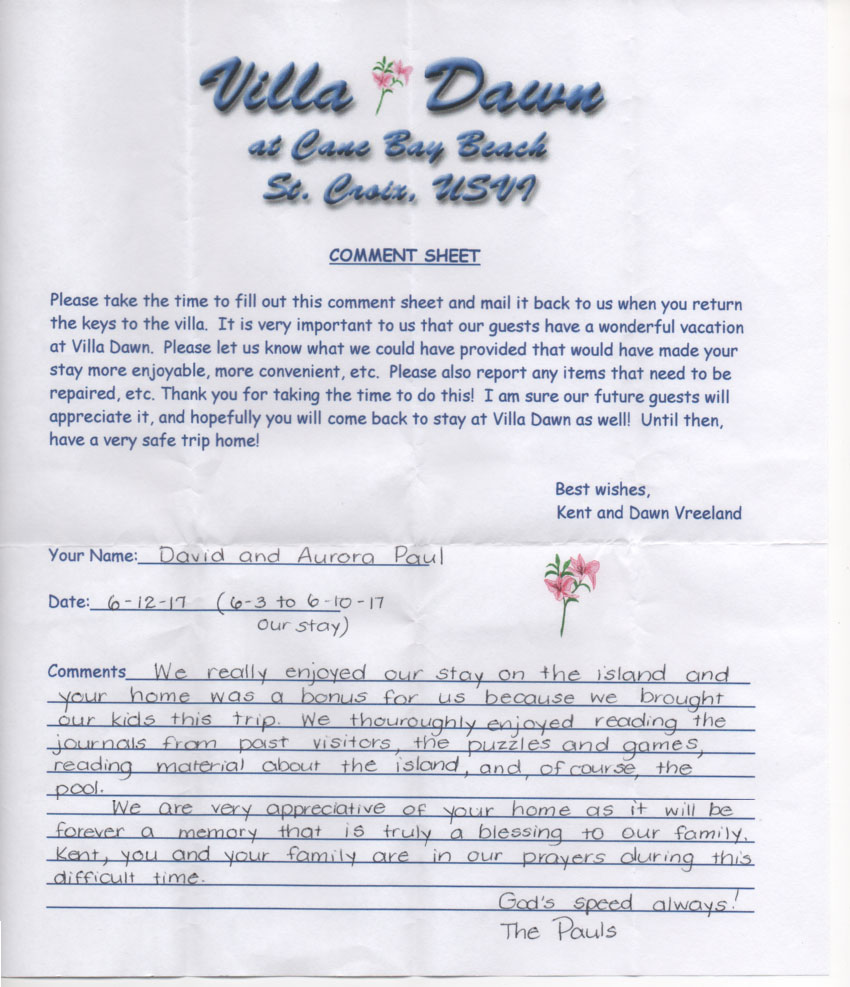 Villa Dawn
at Cane Bay Beach
St. Croix, USVI
COMMENT SHEET
Please take the time to fill out this comment sheet and mail it back to us when you return
the keys to the villa. It is very important to us that our guests have a wonderful vacation
at Villa Dawn. Please let us know what we could have provided that would have made your
stay more enjoyable, more convenient, etc. Please also report any items that need to be
repaired, etc. Thank you for taking the time to do this! I am sure our future guests will
appreciate it, and hopefully you will come back to stay at Villa Dawn as well! Until then,
have a very safe trip home!
Best wishes,
Kent and Dawn Vreeland
Your Name: David and Aurora Paul
Date: 6-12-17 (6-3 to 6-10-17
our stay)
Comments We really enjoyed our stay on the island and
your home was a bonus for us because we brought
our kids this trip. We thouroughly enjoyed reading the
journals from past visitors, the puzzles and games,
reading material about the island, and, of course, the
pool.
We are very appreciative of your home as it will be
forever a memory that is truly a blessing to our family.
Kent, you and your family are in our prayers during this
difficult time.
God's speed always!
The Pauls